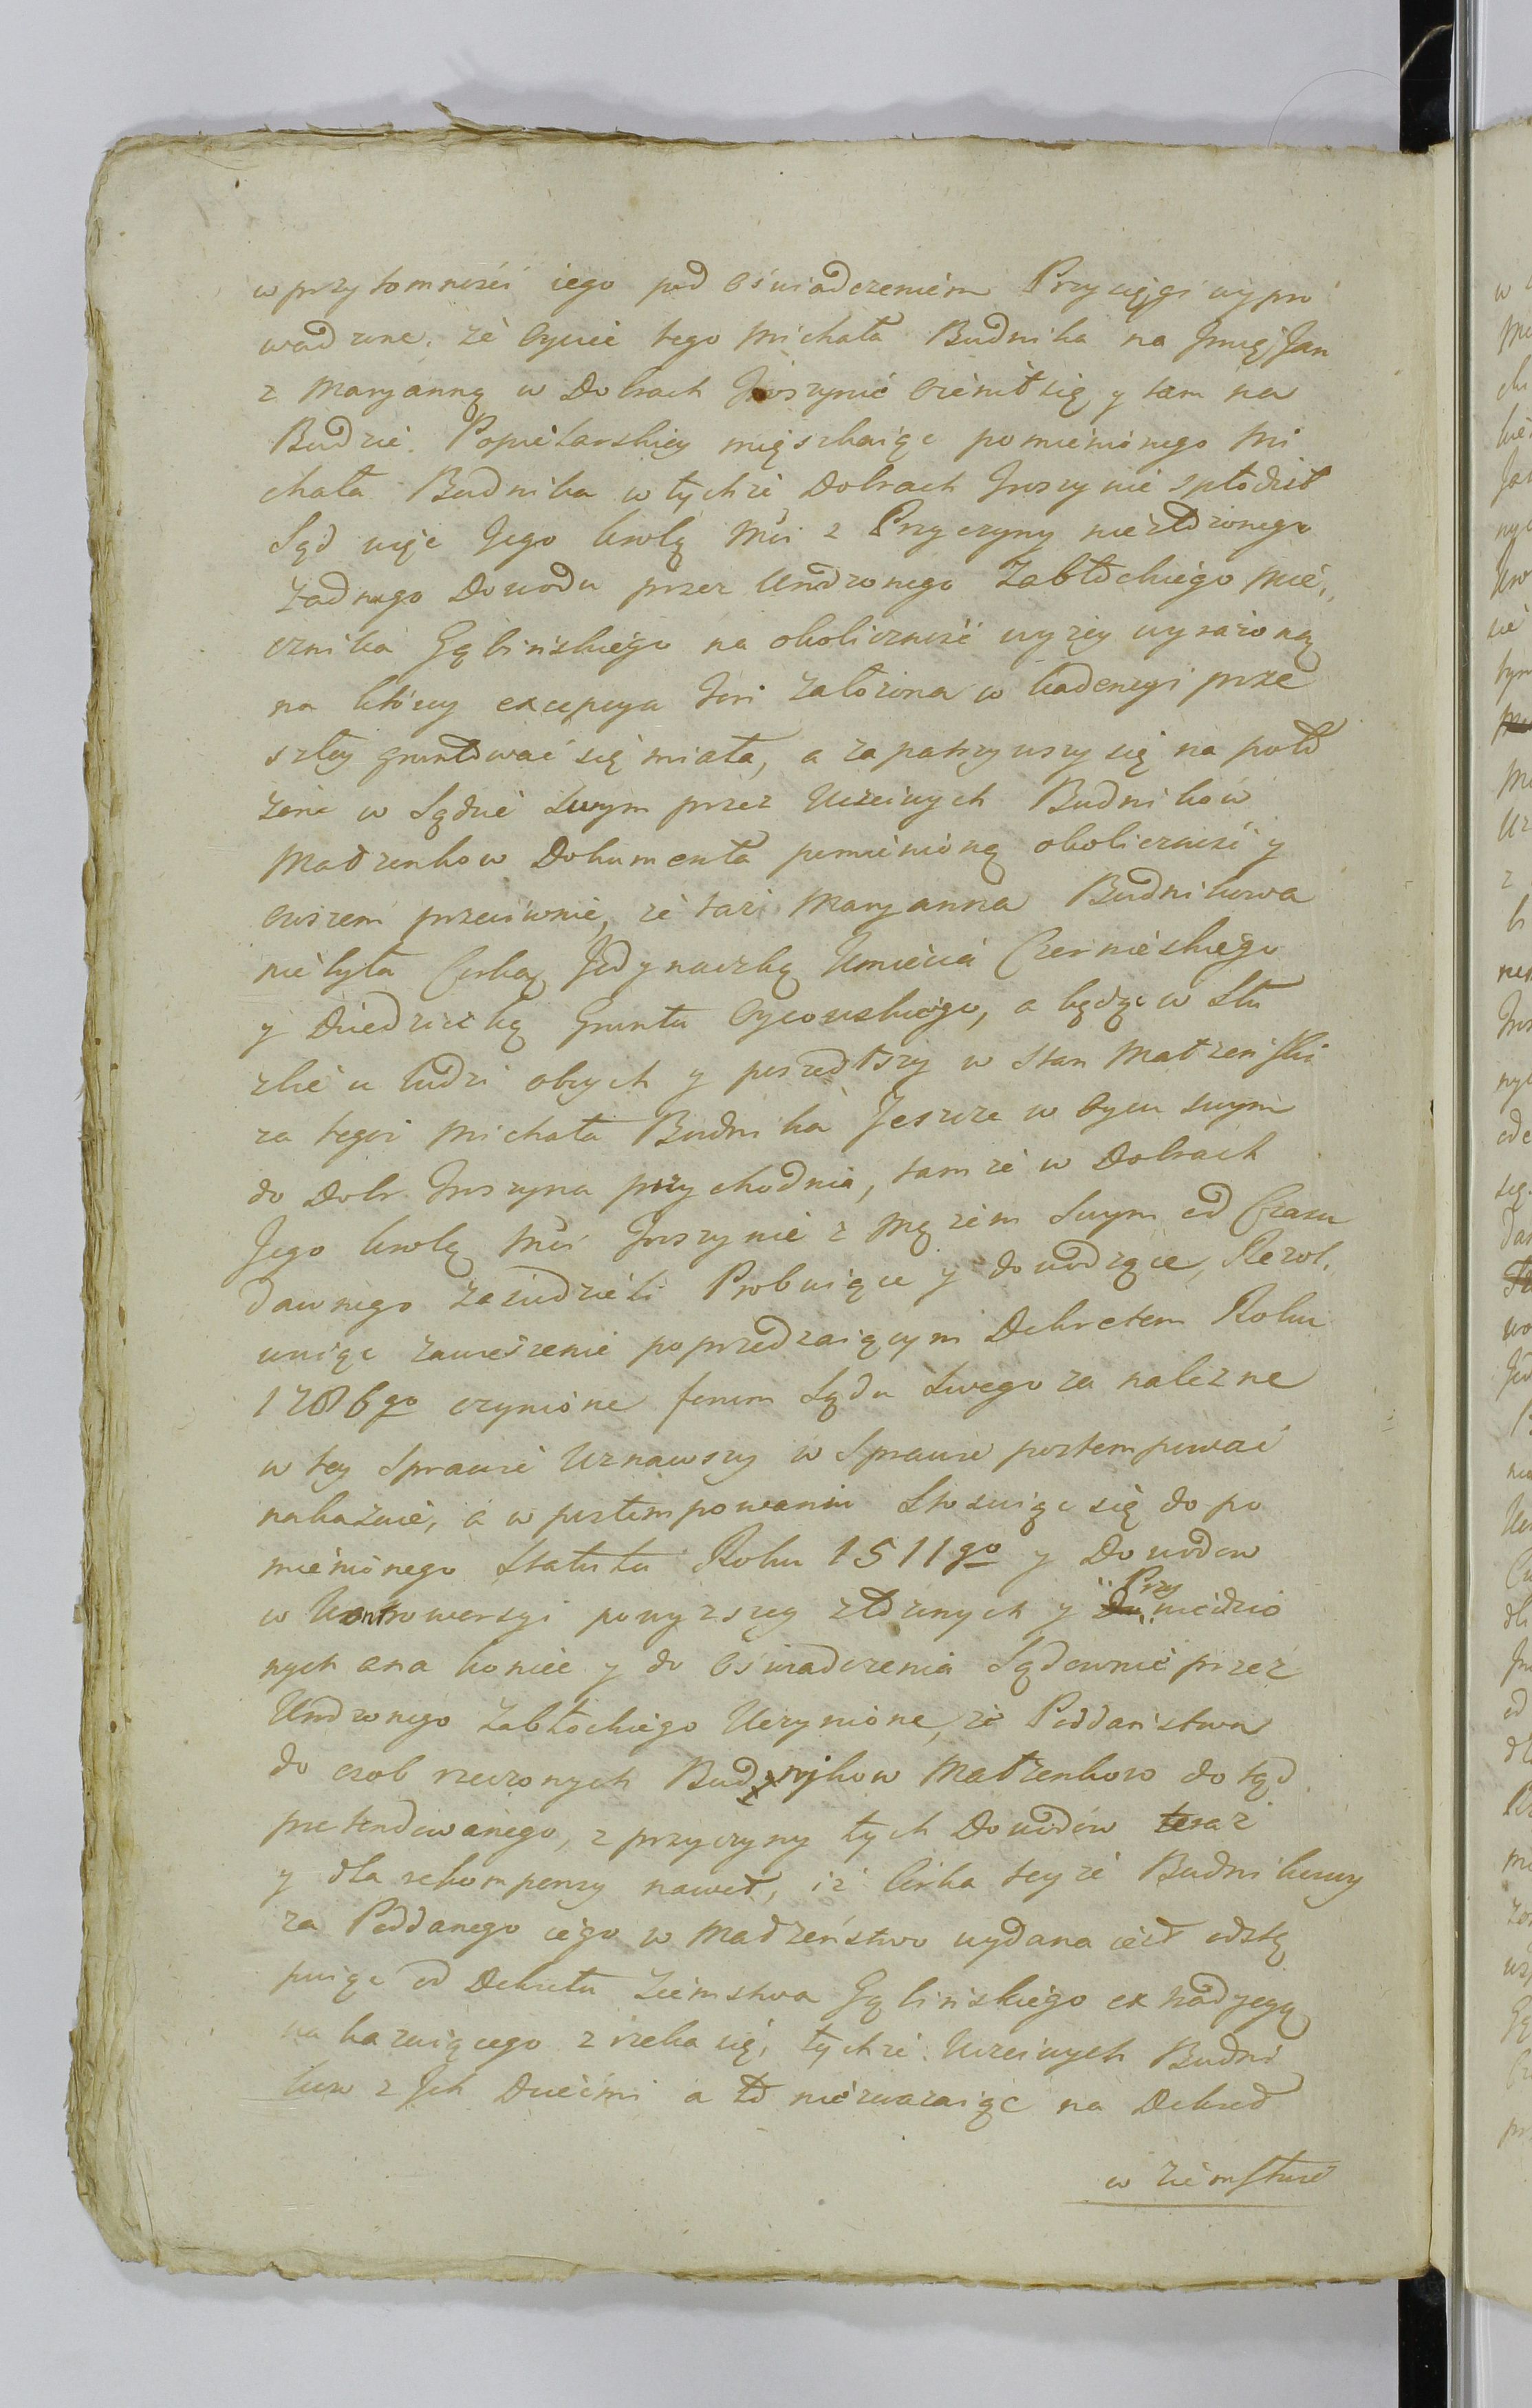 w przytomnosci iego pod Oświadczeniem Przysięgi wypro
wadzone. że Oyciec tego Michała Budnika na Jmię Jan
z Maryanną w Dobrach Jroszynie ożenił się y tam na
Budzie Popielarskiey mięszkaiąc pomienionego Mi
chała Budnika w tychże Dobrach Jroszynie spłodził
Sąd więc Jego Krolę Mci z Przyczyny niezłożonego
żadnego Dowodu przez Urodzonego Zabłockiego Mie,,
cznika Gąbińskiego na okoliczność wyżey wyrażoną
na ktorey excepcya Fori założona w kadencyi prze
szłey gruntować się miała, a zapatrzywszy się na poło
żone w Sądzie Swym przez Uczciwych Budnikow
Małżonkow Dokumenta pomienioną okoliczność y
owszem przeciwnie, że taż Maryanna Budnikowa
nie była Corką Jedynaczką Kmiecia Czernieskiego
y Dziedziczką Gruntu Oycowskiego, a będąc w Słu
żbie u ludzi obcych y poszedłszy w Stan Małżeński
za tegoż Michała Budnika Jeszcze w Oycu swym
do Dobr Jroszyna przychodnia, tamże w Dobrach
Jego Krolę Mci Jroszynie z Mężem Swym od Czasu
Dawnego zasiedzieli Probuiące y dowodzące, Rezol,
wuiąc zawieszenie poprzedzaiącym Dekretem Roku
1786go czynione forum Sądu Swego za należne
w tey Sprawie Uznawszy w Sprawie postempować
nakazuie, a w postempowaniu Stosuiąc się do po
mienionego Statutu Roku 1511go y Dowodow
w Kontrowersyi powyższey złożonych y Przy wiedzio
nych a na koniec y do Oświadczenia Sądownie przez
Urodzonego Zabłockiego Uczynione, że Poddaństwa
do osob rzeczonych Budnikow Małżenkow dotąd
pretendowanego, z przyczyny tych Dowodow teraz
y dla rekompensy nawet, iż Corka teyże Budnikowey
za Poddanego iego w Małżeństwo wydana iest odstę
puiąc od Dekretu Ziemstwa Gąbinskiego extradycyą
nakazuiącego zrzeka się, tychże Uczciwych Budni
kow z Jch Dziećmi a to niezważaiąc na Dekret
w Ziemstwie